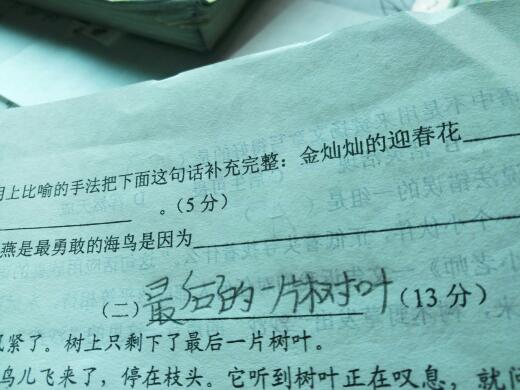 用上比喻的手法把下面这句话补充完整：金灿灿的迎春花
。(5 分)
燕是最勇敢的海鸟是因为
(二) 最后的一片树叶 (13 分)
紧了。树上只剩下了最后一片树叶。
鸟儿飞来了，停在枝头。它听到树叶正在叹息，就问